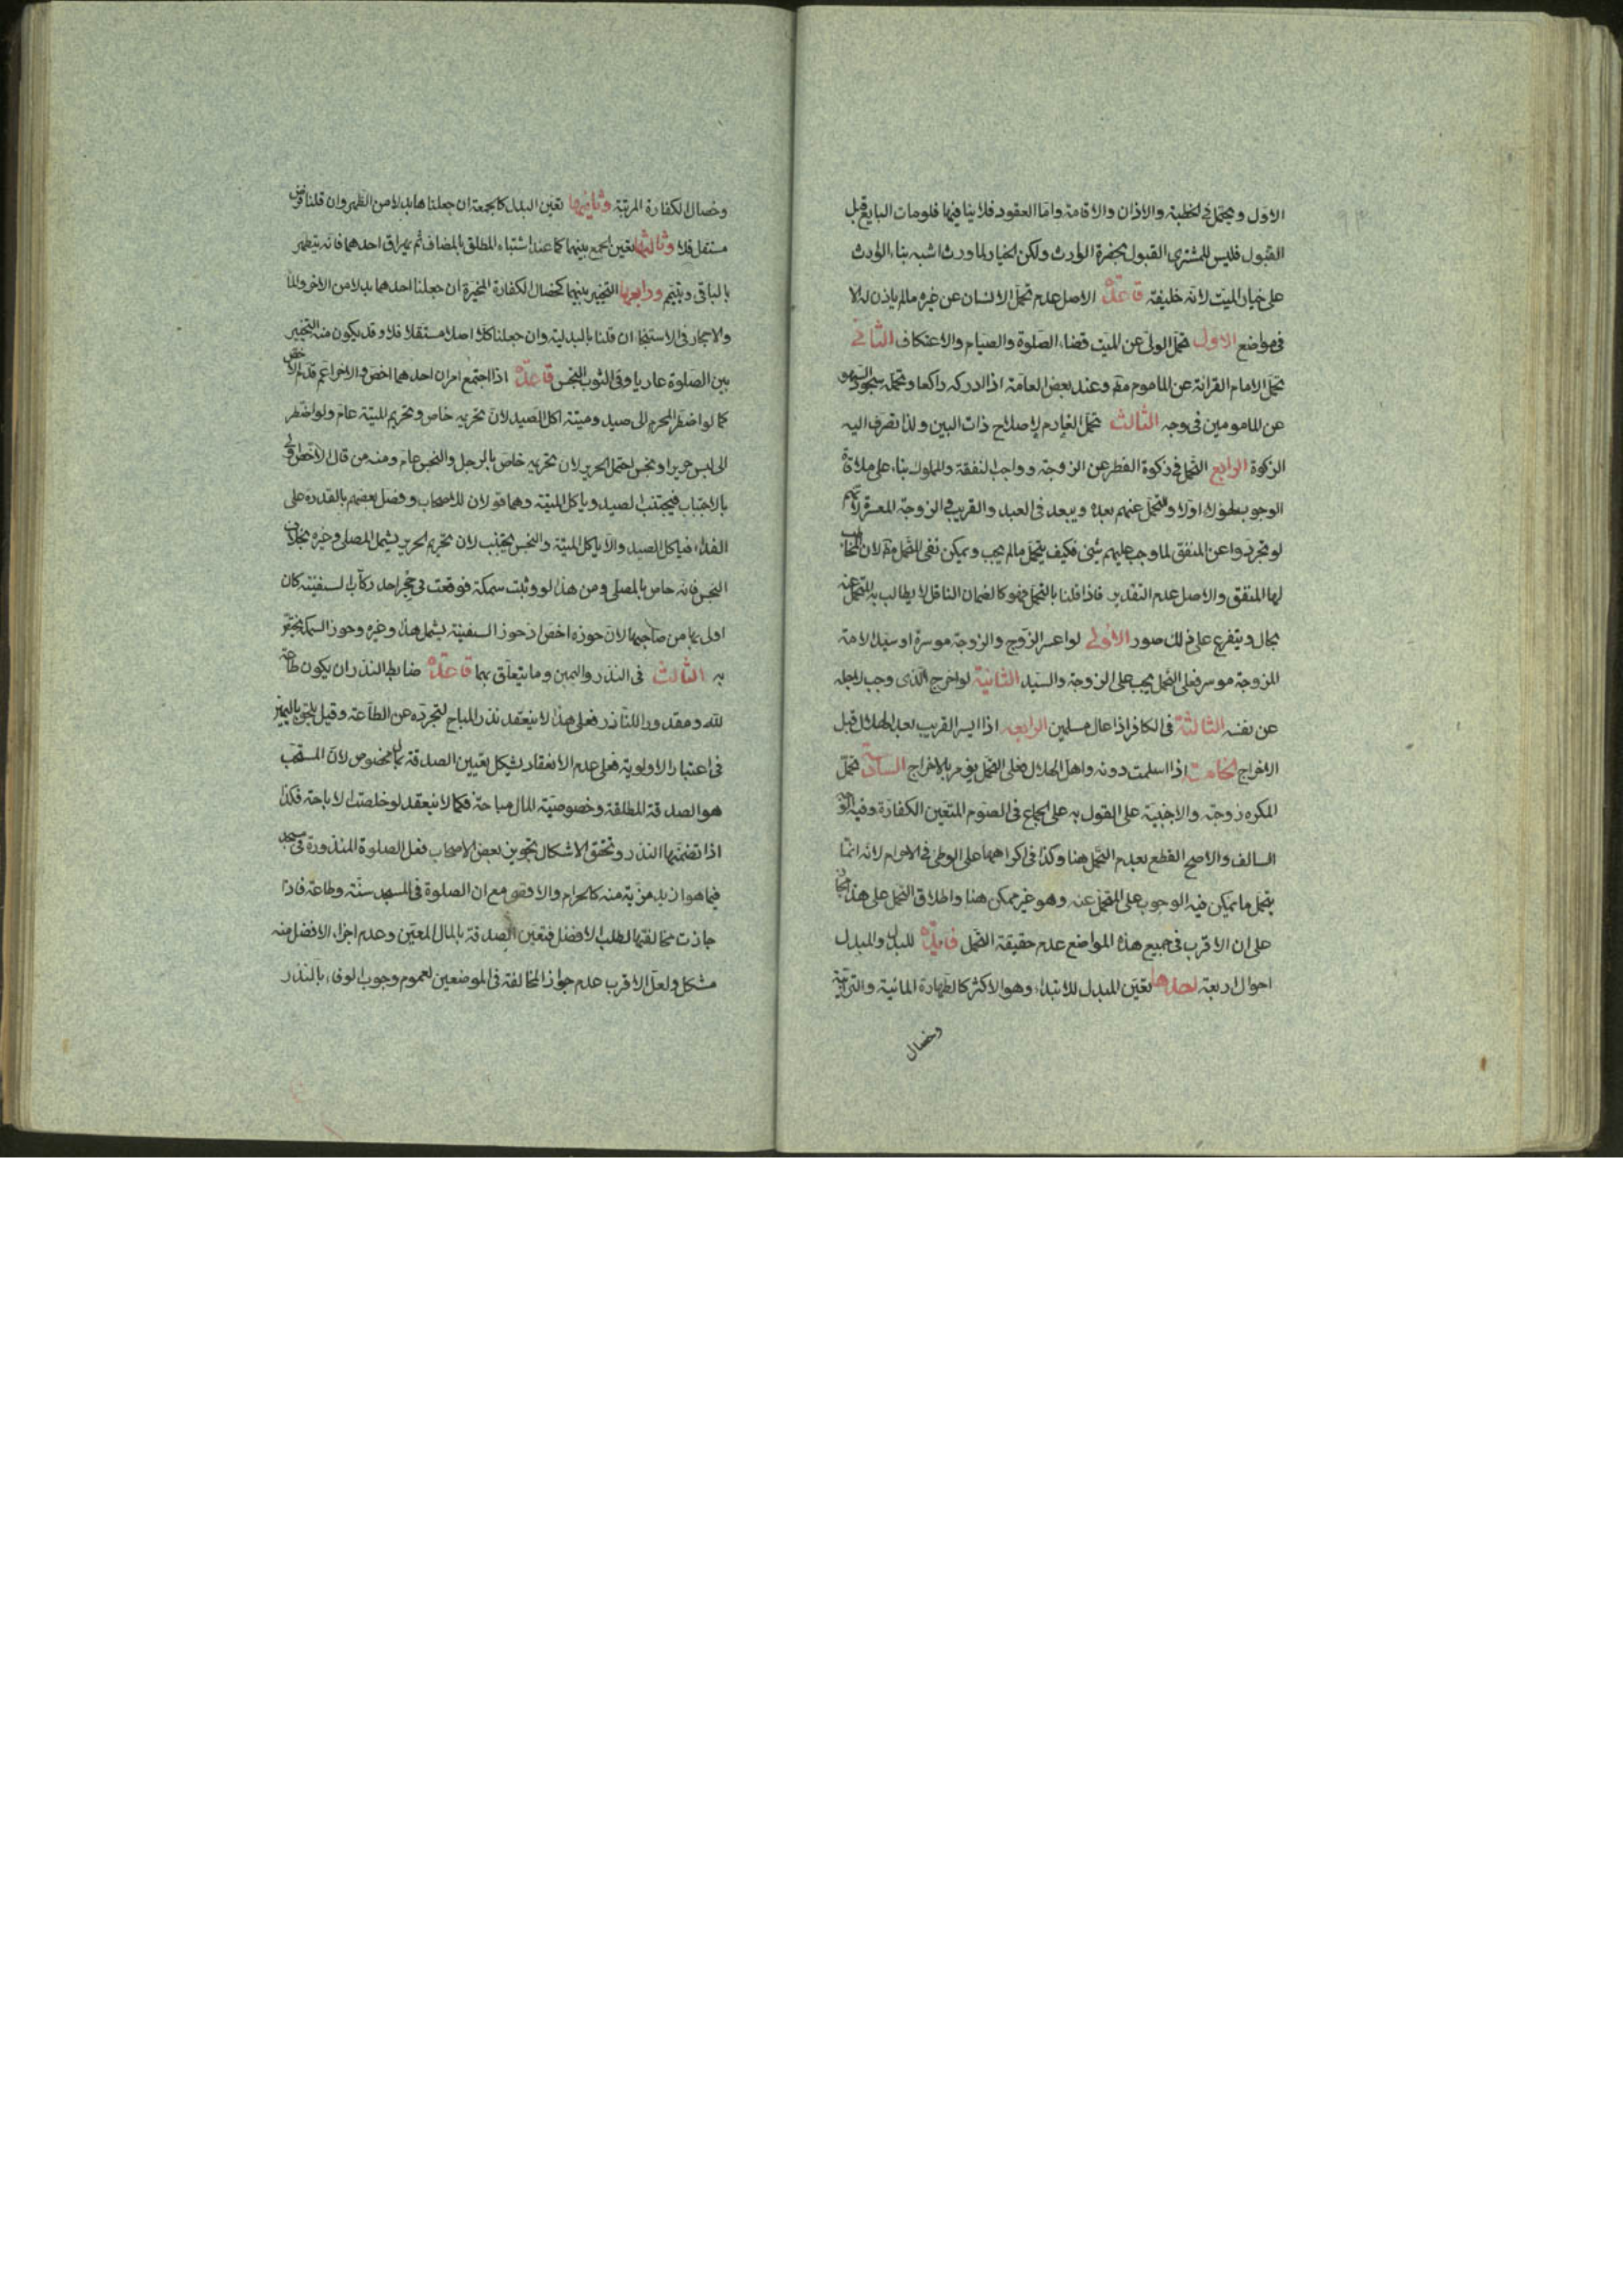 الاول ويحتمل في الخطبة والاذان والاقامة واما العقود فلا بنا فيها فلومات البايع قبل
القبول فليس للمشترى القبول بحضرة الوارث ولكن الخيار لما ورث اشبه بناء الوارث
على خيار الميت لانه خليفته قاعدة الاصل عدم تحمل الانسان عن غيره مالم ياذن له الا
فى مواضع الاول تحمل الولى عن الميت قضاء الصلوة والصيام والاعتكاف الثانى
تحمل الامام القرائة عن الماموم مط وعند بعض العامة اذا ادركه راكعا وتحمله سجود السهو
عن المامومين فى وجه الثالث تحمل الغارم لاصلاح ذات البين ولذا تصرف اليه
الزكوة الرابع التحمل فى زكوة الفطر عن الزوجة وواجب النفقة والمملوك بناء على ملاقاة
الوجوب لهؤلاء اولا والتحمل عنهم بعده ويبعد فى العبد والقريب فى الزوجة المعسرة لانهم
لو تجردوا عن المنفق لما وجب عليهم شئ فكيف يتحمل مالم يجب ويمكن نفى التحمل مط لان المخاطب
لها المنفق والاصل عدم التقدير فاذا قلنا بالتحمل فهو كالضمان الناقل لا يطالب به المتحمل عنه
بحال ويتفرع على ذلك صور الاولى لو اعسر الزوج والزوجة موسرة او سيد الامة
المزوجة موسر فعلى التحمل يجب على الزوجة والسيد الثانية لو اخرج الذى وجب لاجله
عن نفسه الثالثة فى الكافر اذا عال مسلمين الرابعة اذا ايسر القريب بعد الهلال قبل
الاخراج الخامسة اذا اسلمت دونه واهل الهلال فعلى التحمل يؤمر بالاخراج السادسة تحمل
المكره زوجته والاجنبية على القول به على الجماع فى الصوم المتعين الكفارة وفيه
السالف والاصح القطع بعدم التحمل هنا وكذا فى اكراهها على الوطئ فى الاحرام لانه انما
يتحمل ما يمكن فيه الوجوب على المتحمل عنه وهو غير ممكن هنا واطلاق التحمل على هذا مجاز
على ان الاقرب فى جميع هذه المواضع عدم حقيقة التحمل فايدة للبدل والمبدل
احوال اربعة احدها تعين المبدل للابتداء وهو الاكثر كالطهارة المائية والترابية
وخصال
وخصال الكفارة المرتبة وثانيها تعين البدل كالجمعة ان جعلناها بدلا من الظهر وان قلنا فرض
مستقل فلا وثالثها تعين الجمع بينهما كما عند اشتباه المطلق بالمضاف ثم يهراق احدهما فانه يتطهر
بالباقى ويتيمم ورابعها التخيير بينهما كخصال الكفارة المخيرة ان جعلنا احدهما بدلا من الاخر والماء
والاحجار فى الاستنجاء ان قلنا بالبدلية وان جعلنا كلا اصلا مستقلا فلا وقد يكون منه التخيير
بين الصلوة عاريا وفى الثوب النجس قاعدة اذا اجتمع امران احدهما اخص والاخر اعم قدم الاخص
كما لو اضطر المحرم الى صيد وميتة اكل الصيد لان تحريمه خاص وتحريم الميتة عام ولو اضطر
الى لبس حرير او نجس احتمل الحرير لان تحريمه خاص بالرجل والنجس عام ومنه من قال الاخص اولى
بالاجتناب فيجتنب الصيد وياكل الميتة وهما قولان للاصحاب وفصل بعضهم بالقدرة على
الفداء فياكل الصيد والا ياكل الميتة والنجس يجتنب لان تحريم الحرير يشمل المصلى وغيره بخلاف
النجس فانه خاص بالمصلى ومن هذا لو وثبت سمكة فوقعت فى حجر احد ركاب السفينة كان
اولى بها من صاحبها لان حوزه اخص اذ حوز السفينة يشمل هذا وغيره وحوز السمكة يختص
به الثالث فى النذر واليمين وما يتعلق بهما قاعدة ضابط النذر ان يكون طاعة
لله ومقدورا للناذر فعلى هذا لا ينعقد نذر المباح لتجرده عن الطاعة وقيل يلحق باليمين
فى اعتبار الاولوية فعلى عدم الانعقاد يشكل تعيين الصدقة بمال مخصوص لان المستحب
هو الصدقة المطلقة وخصوصية المال مباحة فكما لا ينعقد لو خلصت الاباحة فكذا
اذا تضمنها النذر وتحقق الاشكال بتجويز بعض الاصحاب فعل الصلوة المنذورة فى مسجد
فيما هو ازيد مزية منه كالحرام والاقصى مع ان الصلوة فى المسجد سنة وطاعة فاذا
جازت مخالفتها لطلب الافضل فتعين الصدقة بالمال المعين وعدم اجزاء الافضل منه
مشكل ولعل الاقرب عدم جواز المخالفة فى الموضعين لعموم وجوب الوفاء بالنذر